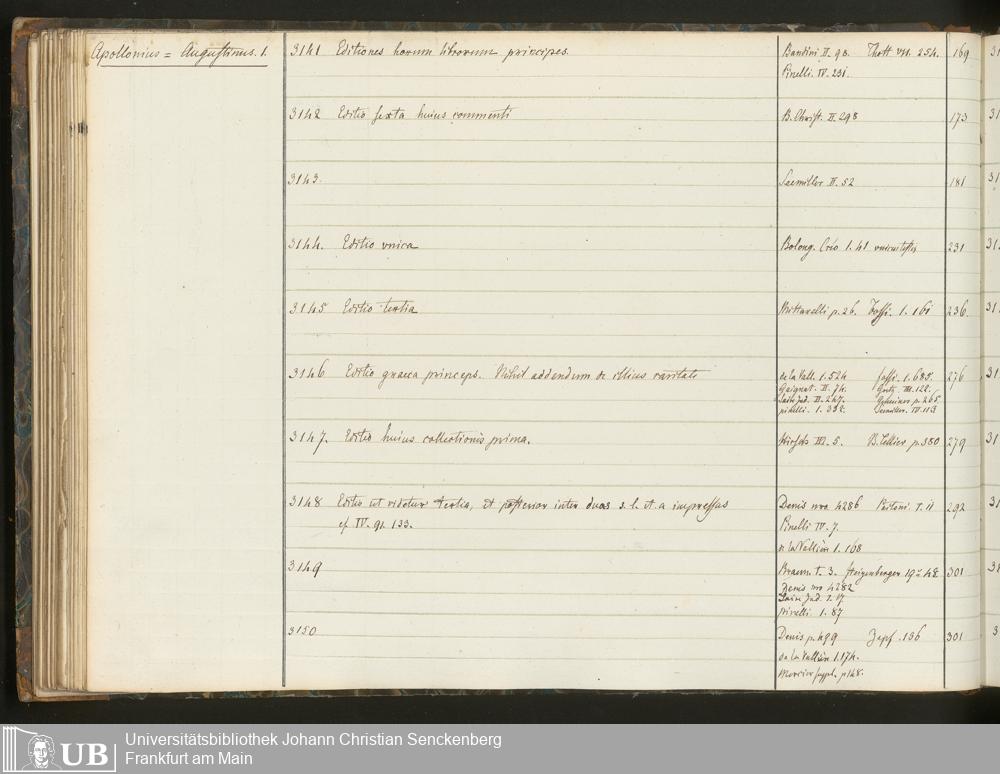 Apollonius = Augustinus. 1.
3141 Editiones horum librorum principes. Bandini II. 98. Thott VII. 254. 169
Pinelli. IV. 231.
3142 Editio sexta huius commenti B. Christ. II. 298 173
3143. Seemiller II. 52 181
3144. Editio vnica Bolong. Crio 1. 41 231
3145 Editio tertia Mittarelli p. 26. Fossi. 1. 161 236.
3146 Editio graeca princeps. Nihil addendum de illius raritate de la Vall. 1. 524 fossi. 1. 685. 276
Gaignat. II. 74. Goetz. III. 122.
Laire Ind. II. 247. p. 265.
pinelli. 1. 332. Seemiller. IV. 113
3147. Editio huius collectionis prima. Hirsch III. 5. B. Tellier p. 380 279
3148 Editio ut videtur tertia, et posterior inter duas s. l. et a impressas Denis nro 4286 T. II 292
cf IV. 91. 133. Pinelli IV. 7.
de la Vallière 1. 168
3149 Braun. t. 3. Steigenberger. 19 u 48 301
Denis nro 4282
Laire Ind.
pinelli. 1. 87
3150 Denis p. 499 Zapf. 136 301
de la Vallière 1.174.
Mercier suppl. p 148.
UB Universitätsbibliothek Johann Christian Senckenberg
Frankfurt am Main